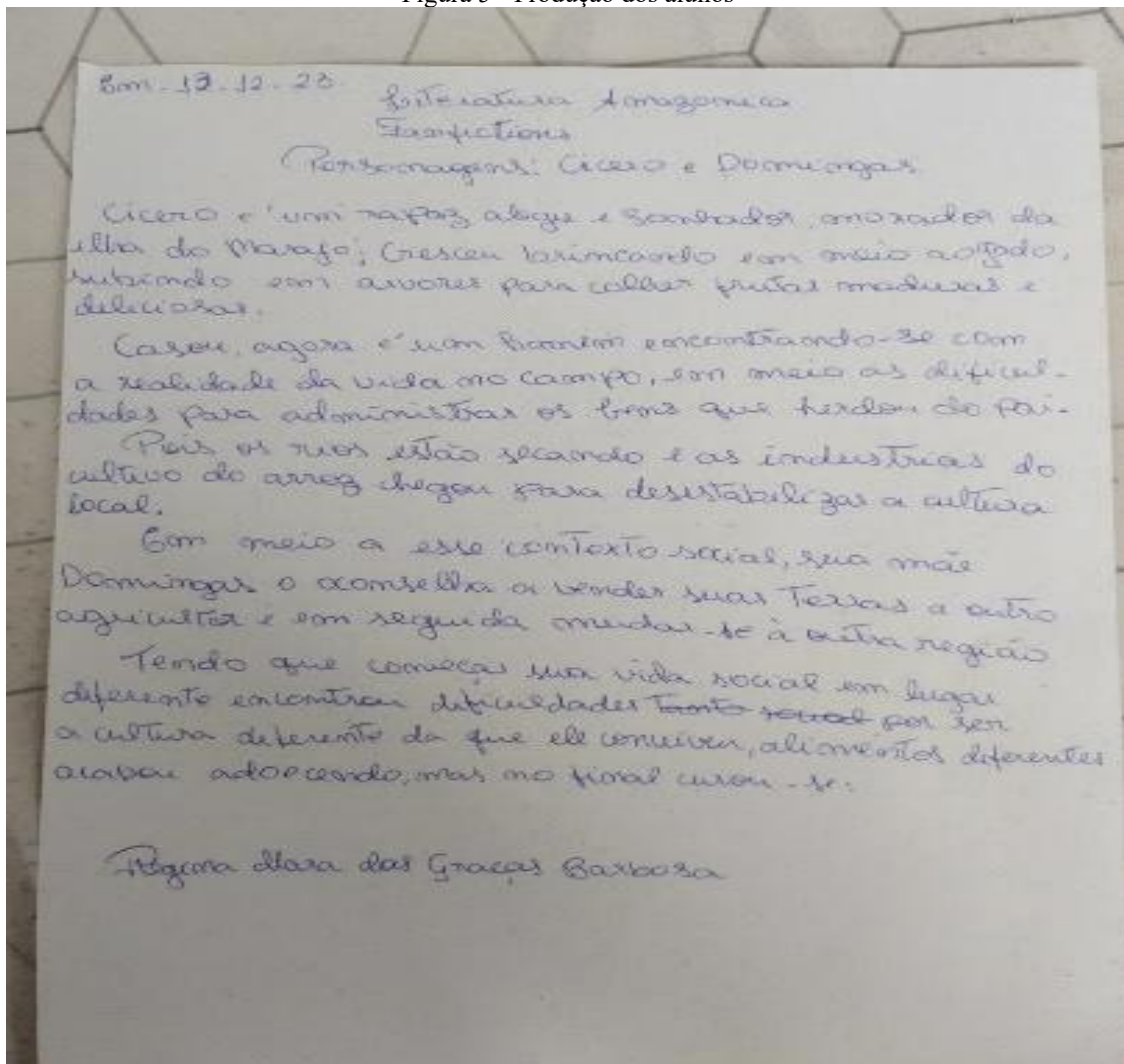 Figura 5 - Produção dos alunos
Em 12.23
Literatura Amazonica
Fanfictions
Personagens: Cicero e Domingas
Cicero e' um rapaz alegre e sonhador, morador da
ilha do Marajo'; Cresceu brincando em meio ao gado,
subindo em arvores para colher frutas maduras e
deliciosas.
Casou, agora e' um homem encontrando-se com
a realidade da vida no campo, em meio as dificul-
dades para administrar os bens que herdou do pai.
Pois os rios estão secando e as industrias do
cultivo do arroz chegou para desestabilizar a cultura
local.
Em meio a esse contexto social, sua mãe
Domingas o aconselha a vender suas Terras a outro
agricultor e em seguida mudar-se à outra região
Tendo que começar sua vida social em lugar
diferente encontrou dificuldades tanto social por ser
a cultura diferente da que ele conviveu, alimentos diferentes
acabou adoecendo, mas no final curou-se.
Regina Mara das Graças Barbosa